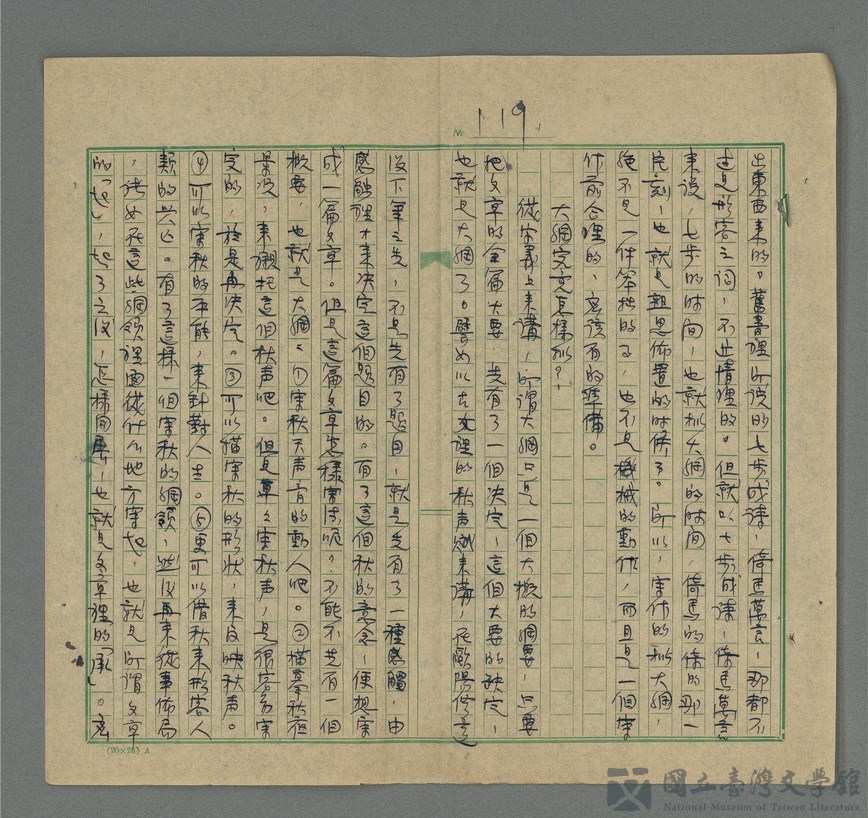 No 119
出東西來的。舊書裡所說的七步成詩,倚馬萬言,那都不
过是形容之詞,不近情理的。但就以七步成詩,倚馬萬言
來說,七步的时间,也就拟大綱的时间,倚馬的倚的那一
片刻,也就是熟思佈置的时候了。所以,寫作的拟大綱,
絕不是一件笨拙的事,也不是機械的動作,而且是一個寫
作前合理的,應該有的準備。
大綱究竟怎樣拟?
從字義上來講,所謂大綱只是一個大概的綱要,只要
把文章的全篇大要,先有了一個决定,這個大要的決定,
也就是大綱了。譬如以古文裡的秋声賦來講,在歐陽修
沒下筆之先,不是先有了題目,就是先有了一種感觸,由
感觸裡才來决定這個題目的。有了這個秋的意念,便想寫
成一篇文章。但是這篇文章怎樣寫法呢?不能不先有一個
概要,也就是大綱。①寫秋天声音的動人吧。②描摹秋夜
景況,來襯托這個秋声吧。但是單單寫秋声,是很容易寫
完的,於是再决定。③可以描寫秋的形狀,來反映秋声。
④可以寫秋的本能,來針對人生。⑤更可以借秋來形容人
類的興亡。有了這樣一個寫秋的綱領,然後再來從事佈局
,譬如在這些綱領裡面從什么地方寫起,也就是所謂文章
的「起」,起了之後,怎樣開展,也就是文章裡的「承」。
(20×25) A
國立臺灣文學館
National Museum of Taiwan Literature